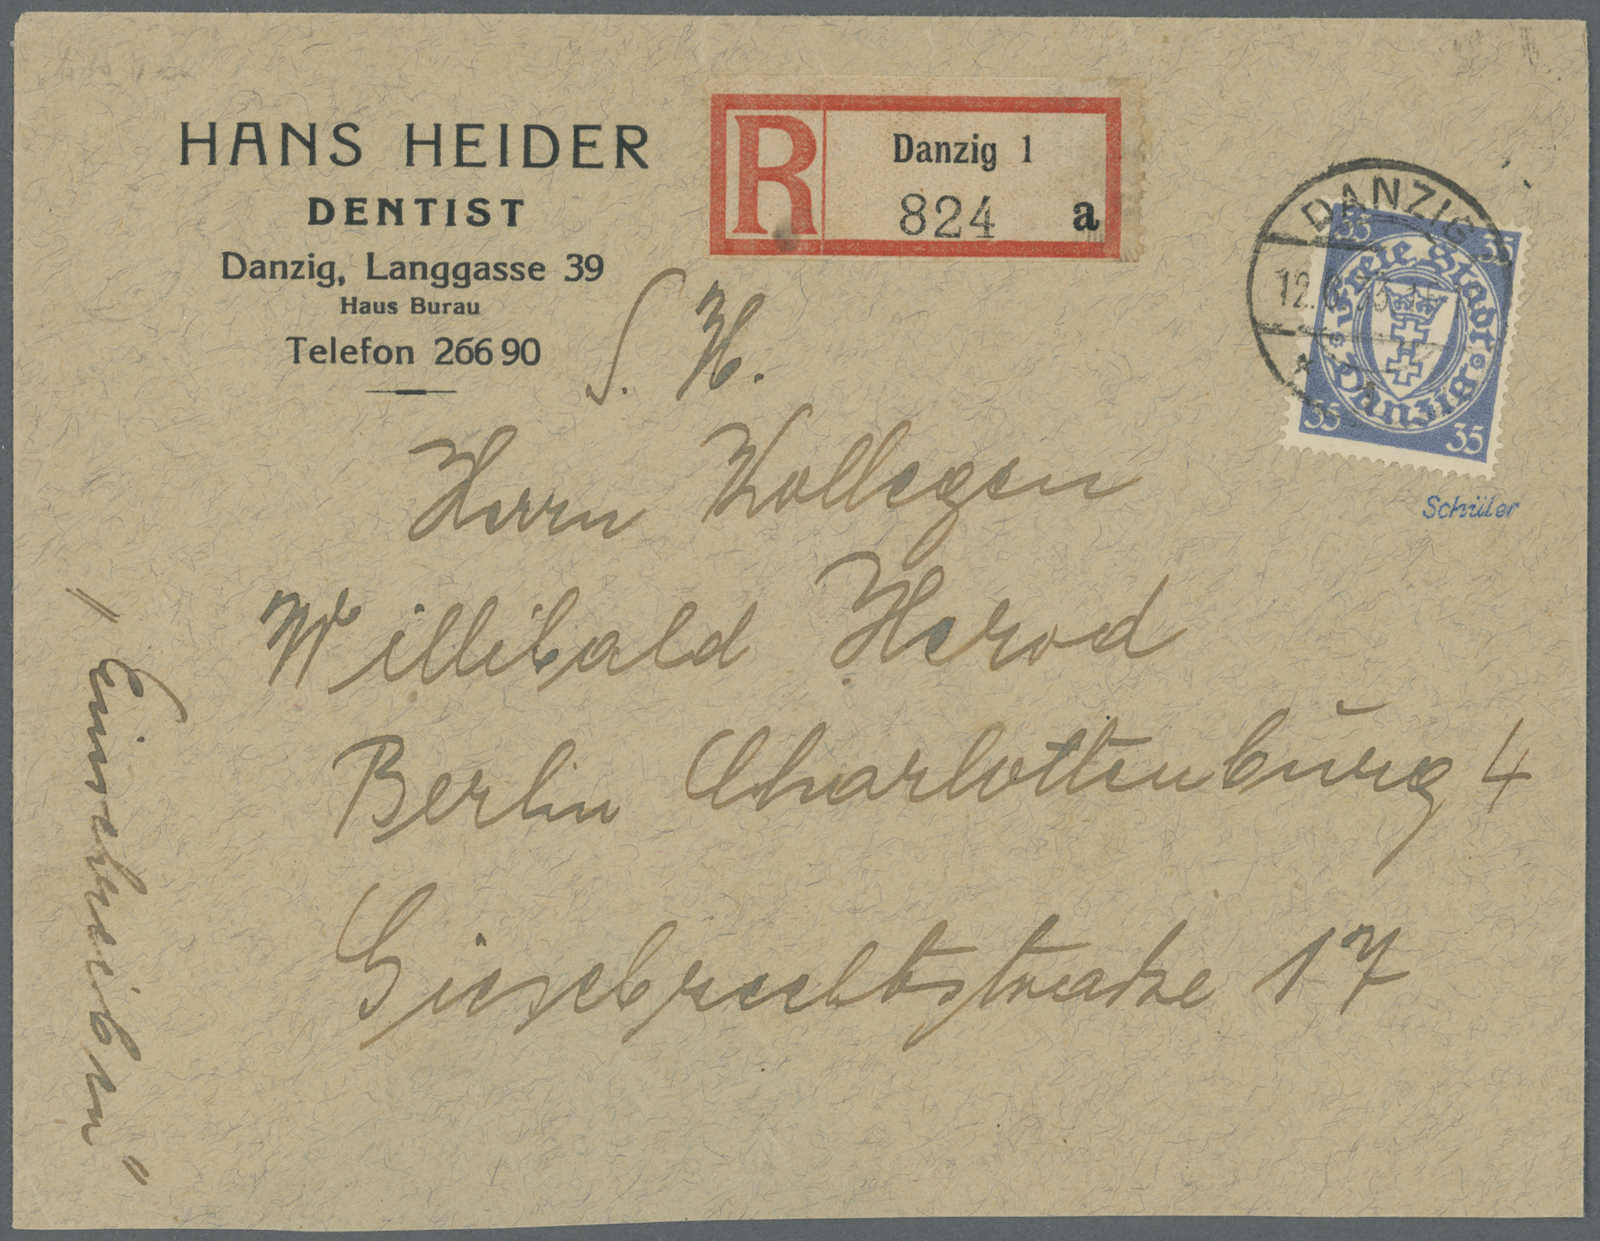 HANS HEIDER
DENTIST
Danzig, Langgasse 39
Haus Burau
Telefon 26690
R
Danzig 1
824 a
DANZIG
12.
35 35
Freie Stadt Danzig
35 35
Schüler
S. H.
Herrn Kollegen
Willibald Herod
Berlin Charlottenburg 4
Giesebrechtstraße 17
"Einschreiben"